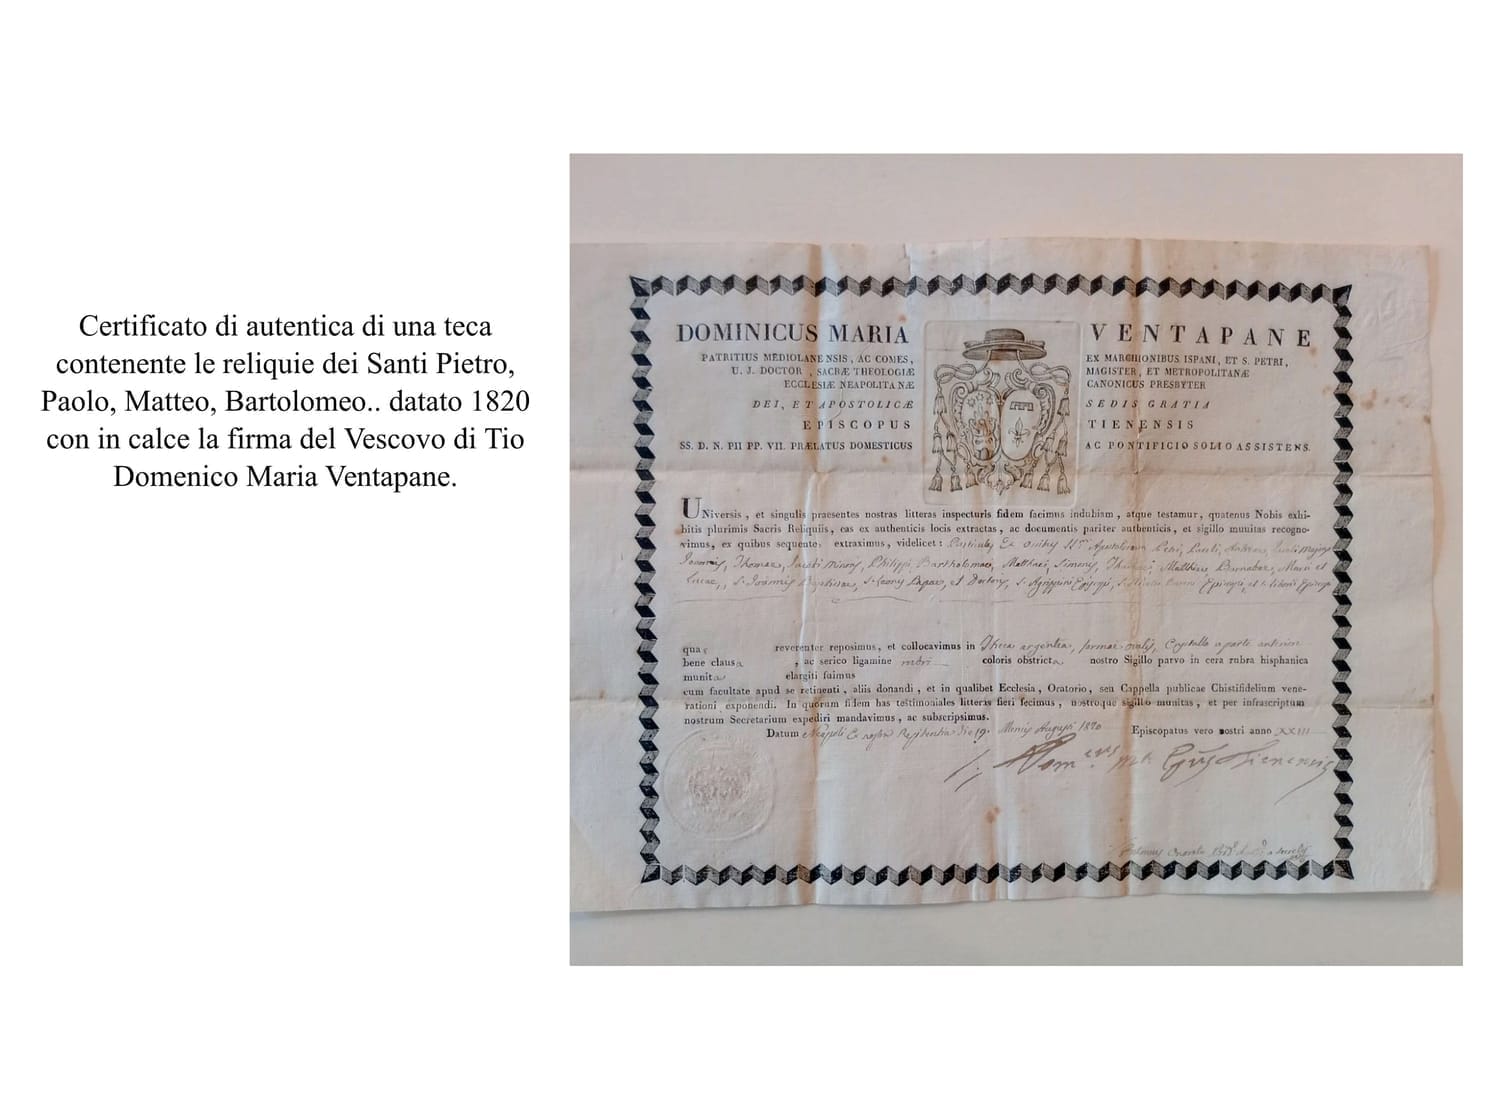 Certificato di autentica di una teca
contenente le reliquie dei Santi Pietro,
Paolo, Matteo, Bartolomeo.. datato 1820
con in calce la firma del Vescovo di Tio
Domenico Maria Ventapane.
DOMINICUS MARIA VENTAPANE
PATRITIUS MEDIOLANENSIS, AC COMES, EX MARCHIONIBUS ISPANI, ET S. PETRI,
U. J. DOCTOR, SACRÆ THEOLOGIÆ MAGISTER, ET METROPOLITANÆ
ECCLESIÆ NEAPOLITANÆ CANONICUS PRESBYTER
DEI, ET APOSTOLICÆ SEDIS GRATIA
EPISCOPUS TIENENSIS
SS. D. N. PII PP. VII. PRÆLATUS DOMESTICUS AC PONTIFICIO SOLIO ASSISTENS.
UNiversis, et singulis praesentes nostras litteras inspecturis fidem facimus indubiam, atque testamur, quatenus Nobis exhi-
bitis plurimis Sacris Reliquiis, eas ex authenticis locis extractas, ac documentis pariter authenticis, et sigillo munitas recogno-
vimus, ex quibus sequente extraximus, videlicet: Particulas Ex Apostolorum Petri, Pauli, Andreae, Majoris
Joannis, Thomae, Jacobi Minoris, Philippi, Bartholomaei, Matthaei, Simonis, Matthiae, Barnabae, Marci et
Lucae, S. Joannis Baptistae, S. Leonis Papae, et Doctoris, S. Agrippini Episcopi, Episcopi, et
quas reverenter reposuimus, et collocavimus in Theca argentea, formae ovalis, Crystallo a parte anteriori
bene clausa, ac serico ligamine rubri coloris obstricta nostro Sigillo parvo in cera rubra hisphanica
munita elargiti fuimus
cum facultate apud se retinenti, aliis donandi, et in qualibet Ecclesia, Oratorio, seu Cappella publicae Chistifidelium vene-
rationi exponendi. In quorum fidem has testimoniales litteris fieri fecimus, nostroque sigillo munitas, et per infrascriptum
nostrum Secretarium expediri mandavimus, ac subscripsimus.
Datum Neapoli Ex nostra Residentia die 19. Mensis Augusti 1820 Episcopatus vero nostri anno XXIII
Tienensis